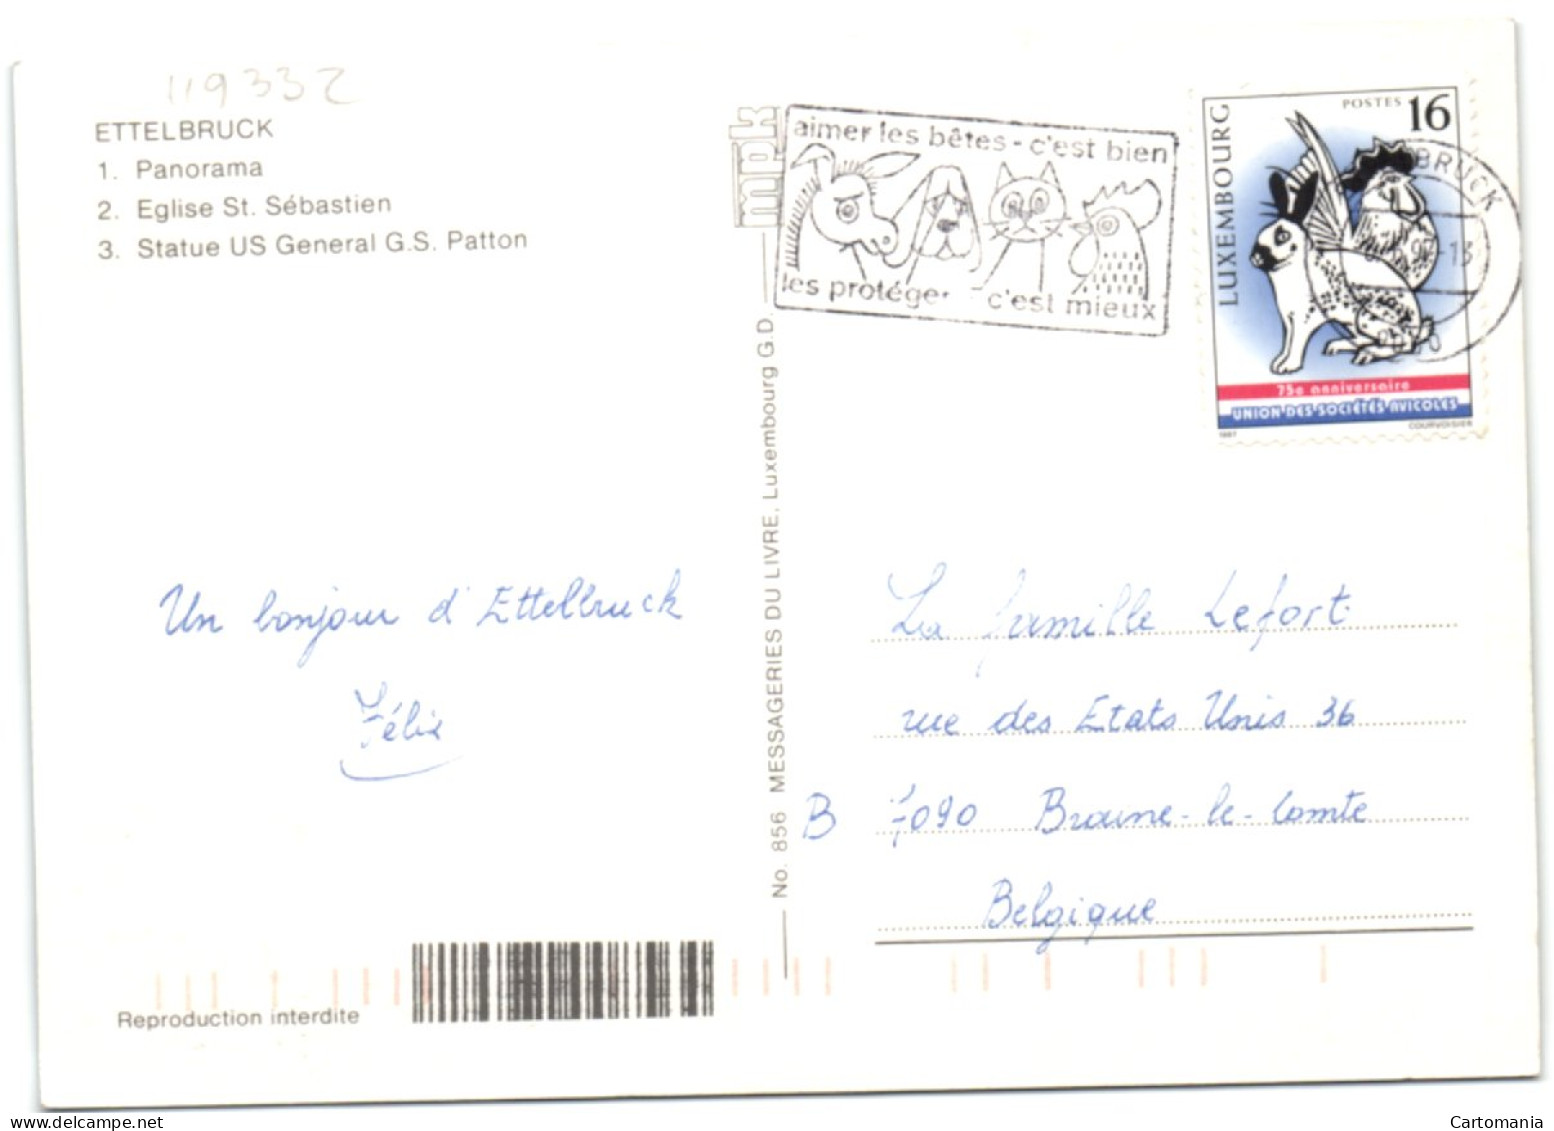 119332
ETTELBRUCK
1. Panorama
2. Eglise St. Sébastien
3. Statue US General G.S. Patton
mpk
aimer les bêtes - c'est bien
les protéger - c'est mieux
POSTES 16
LUXEMBOURG
BRUCK
75e anniversaire
UNION DES SOCIÉTÉS AVICOLES
1987 COURVOISIER
No. 856 MESSAGERIES DU LIVRE, Luxembourg G.D.
Un bonjour d'Ettelbruck
Félix
La famille Lefort
rue des Etats Unis 36
B 7090 Braine-le-Comte
Belgique
Reproduction interdite
Cartomania